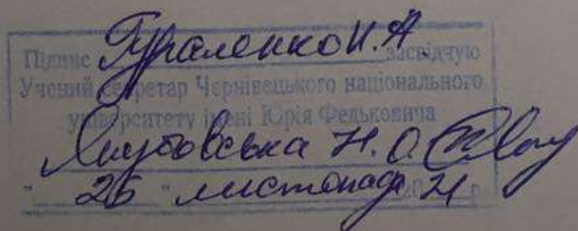 Підпис Гураленко Н.А. засвідчую
Учений секретар Чернівецького національного
університету імені Юрія Федьковича
Якубовська Н.О.
"26" листопада 21 р.